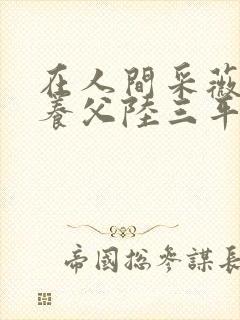 在人間采薇
養父陸三年
帝國總參謀長